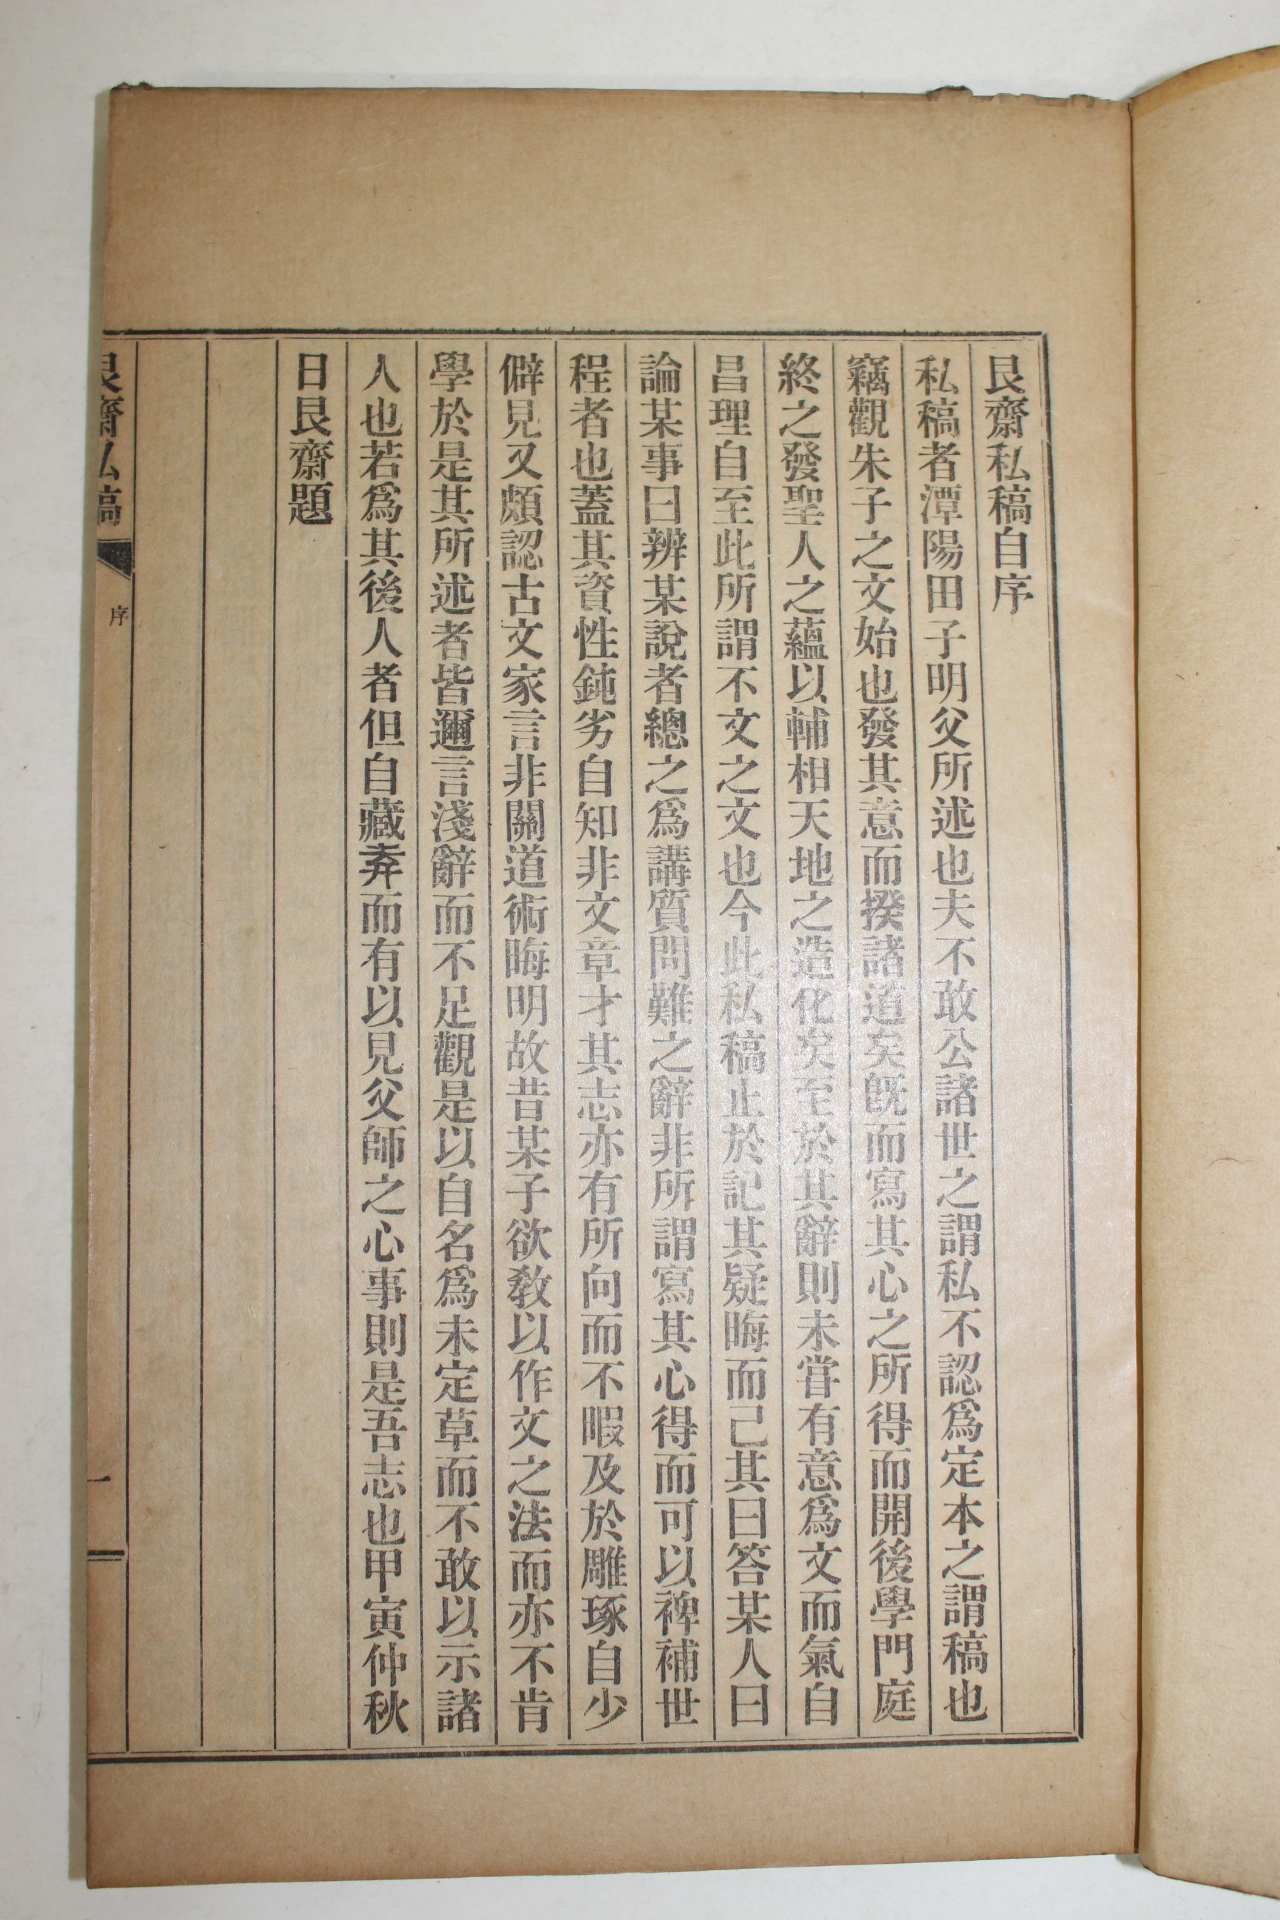 艮齋私稿自序
私稿者潭陽田子明父所述也夫不敢公諸世之謂私不認爲定本之謂稿也
竊觀朱子之文始也發其意而揆諸道矣旣而寫其心之所得而開後學門庭
終之發聖人之蘊以輔相天地之造化矣至於其辭則未嘗有意爲文而氣自
昌理自至此所謂不文之文也今此私稿止於記其疑晦而己其曰答某人曰
論某事曰辨某說者總之爲講質問難之辭非所謂寫其心得而可以裨補世
程者也蓋其資性鈍劣自知非文章才其志亦有所向而不暇及於雕琢自少
僻見又頗認古文家言非關道術晦明故昔某子欲敎以作文之法而亦不肯
學於是其所述者皆邇言淺辭而不足觀是以自名爲未定草而不敢以示諸
人也若爲其後人者但自藏弆而有以見父師之心事則是吾志也甲寅仲秋
日艮齋題
艮齋私稿 序 一